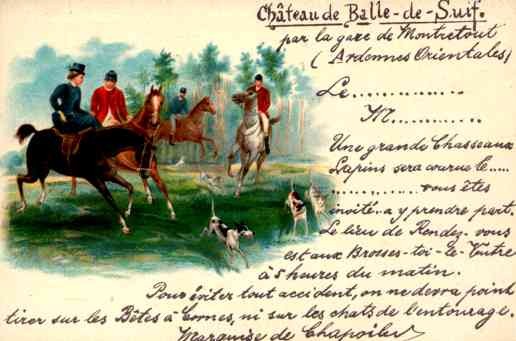 Château de Balle-de-Suif.
par la gare de Montretout
(Ardonnes Orientales)
Le.............
M.............
Une grande Chasseaux
Lapins sera courue le.....
............vous êtes
invité..a y prendre part.
Le lieu de Rendez-vous
est aux Brosses-toi-le-Ventre
à 5 heures du matin.
Pour éviter tout accident, on ne devra point
tirer sur les Bêtes à Cornes, ni sur les chats de l'entourage.
Marquise de Chapoilu